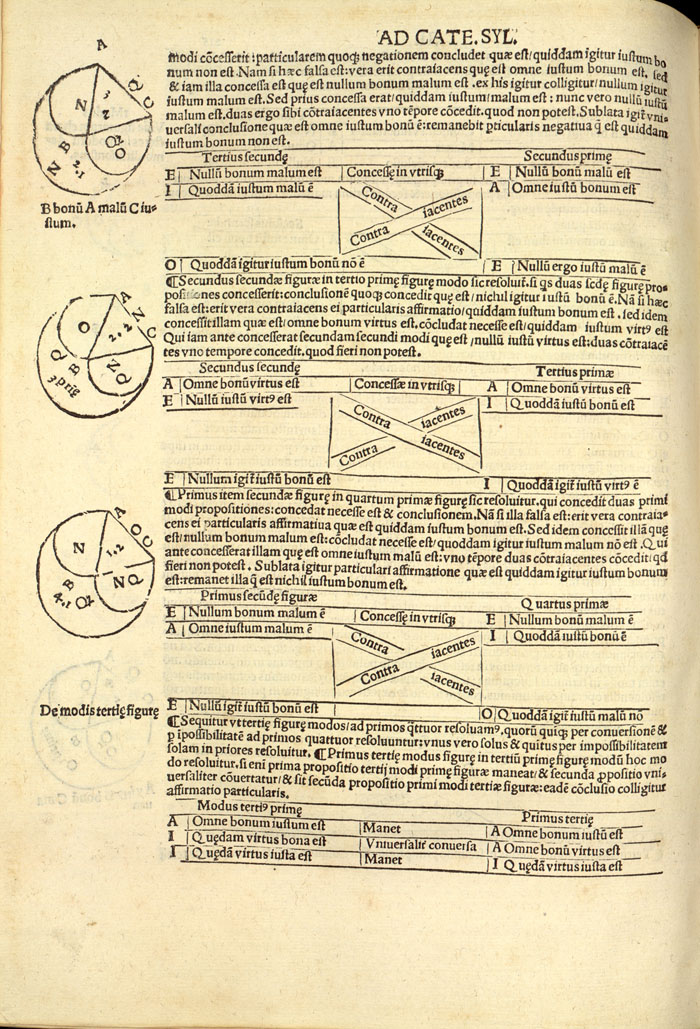 AD CATE. SYL.
modi cōcesserit: particularem quoq; negationem concludet quæ est/quiddam igitur iustum bo
num non est. Nam si hæc falsa est: vera erit contraiacens quę est omne iustum bonum est, sed
& iam illa concessa est quę est nullum bonum malum est. ex his igitur colligitur/nullum igitur
iustum malum est. Sed prius concessa erat/quiddam iustum/malum est: nunc vero nullū iustū
malum est. duas ergo sibi cōtraiacentes vno tēpore cōcedit. quod non potest. Sublata igit̄ vni-
uersali conclusione quæ est omne iustum bonū ē: remanebit pticularis negatiua q̄ est quiddam
iustum bonum non est.
Tertius secundę Secundus primę
E | Nullū bonum malum est | Concessę in vtrisq; | E | Nullū bonū malū est
I | Quoddā iustum malū ē | A | Omne iustū bonum est
Contra iacentes
Contra iacentes
O | Quoddā igitur iustum bonū nō ē | E | Nullū ergo iustū malū ē
B bonū A malū C iu-
stum.
¶ Secundus secundæ figuræ in tertio primę figurę modo sic resoluit̄. si q̄s duas scdę figurę pro-
positiones concesserit: conclusionē quoq; concedit quę est/nichil igitur iustū bonū ē. Nā si hæc
falsa est: erit vera contraiacens ei particularis affirmatio/quiddam iustum bonum est. sed idem
concessit illam quæ est/omne bonum virtus est. cōcludat necesse est/quiddam iustum virt⁹ est
Qui iam ante concesserat secundam secundi modi quę est/nullū iustū virtus est: duas cōtraiacē
tes vno tempore concedit. quod fieri non potest.
Secundus secundę Tertius primæ
A | Omne bonū virtus est | Concessæ in vtrisq; | A | Omne bonū virtus est
E | Nullū iustū virt⁹ ē | I | Quoddā iustū bonū est
Contra iacentes
Contra iacentes
E | Nullum igit̄ iustū bonū est | I | Quoddā igit̄ iustū virt⁹ ē
¶ Primus item secundæ figurę in quartum primæ figurę sic resoluitur. qui concedit duas primi
modi propositiones: concedat necesse est & conclusionem. Nā si illa falsa est: erit vera contraia-
cens ei particularis affirmatiua quæ est quiddam iustum bonum est. Sed idem concessit illā quę
est/nullum bonum malum est: cōcludat necesse est/quoddam igitur iustum malum nō est. Qui
ante concesserat illam quę est omne iustum malū est: vno tēpore duas cōtraiacentes cōcedit: qd
fieri non potest. Sublata igitur particulari affirmatione quæ est quiddam igitur iustum bonum
est: remanet illa q̄ est nichil iustum bonum est.
Primus secūdę figuræ Quartus primæ
E | Nullum bonum malum ē | Concessę in vtrisq; | E | Nullum bonū malum ē
A | Omne iustum malum ē | I | Quoddā iustū bonū ē
Contra iacentes
Contra iacentes
E | Nullū igit̄ iustū bonū est | O | Quoddā igit̄ iustū malū nō
De modis tertię figurę
¶ Sequitur vt tertię figurę modos/ad primos q̄ttuor resoluam⁹. quorū quiq; per conuersionē &
p ipossibilitatē ad primos quattuor resoluuntur: vnus vero solus & quitus per impossibilitatem
solam in priores resoluitur. ¶ Primus tertię modus figurę in tertiū primę figurę modū hoc mo
do resoluitur. si eni prima propositio tertij modi primę figuræ maneat/& secunda ppositio vni-
uersaliter cōuertatur/& sit secūda propositio primi modi tertiæ figuræ: eadē cōclusio colligitur
affirmatio particularis.
Modus terti⁹ primę Primus tertię
A | Omne bonum iustum est | Manet | A Omne bonum iustū est
I | Quędam virtus bona est | Vniuersalit̄ conuersa | A Omne bonū virtus est
I | Quędā virtus iusta est | Manet | I Quędā virtus iusta est